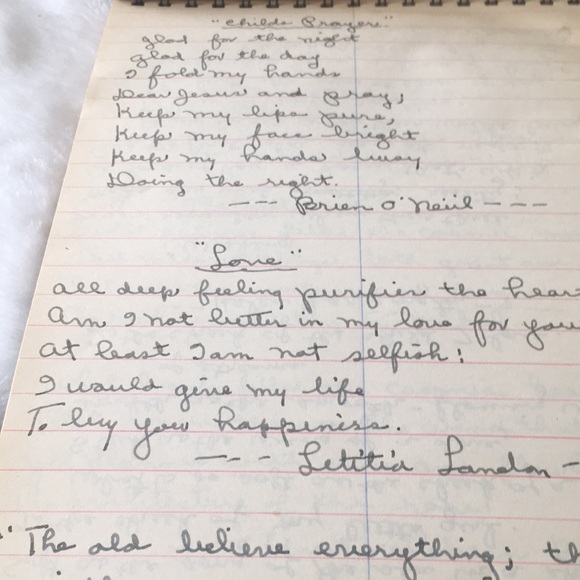 "Childs Prayer"
glad for the night
glad for the day
I fold my hands
Dear Jesus and pray,
Keep my lips pure,
Keep my face bright
Keep my hands busy
Doing the right.
--- Brien O'Neiil ---
"Love"
all deep feeling purifies the hear
Am I not better in my love for you
at least I am not selfish!
I would give my life
To buy your happiness.
--- Letitia Landon -
"The old believe everything; th